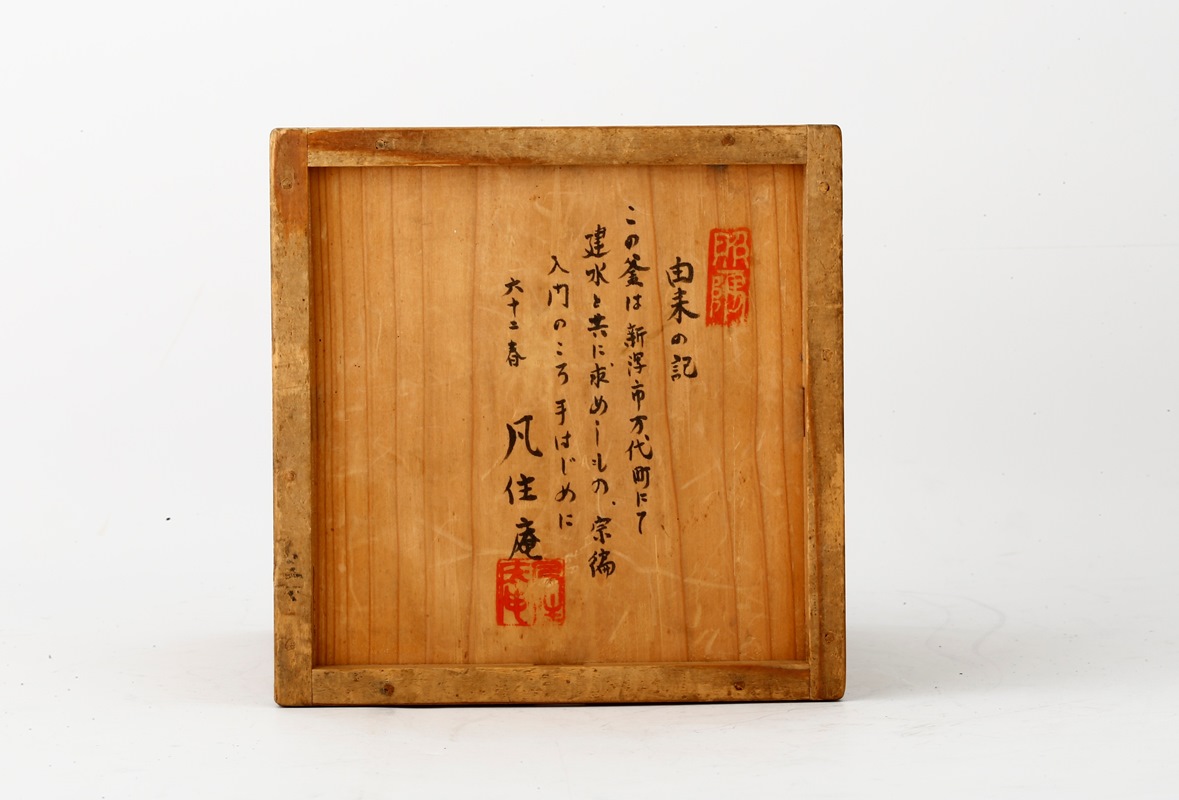 由来の記
この釜は新潟市万代町にて
建水と共に求めしもの、宗徧
入門のころ手はじめに
六十二春
凡住庵